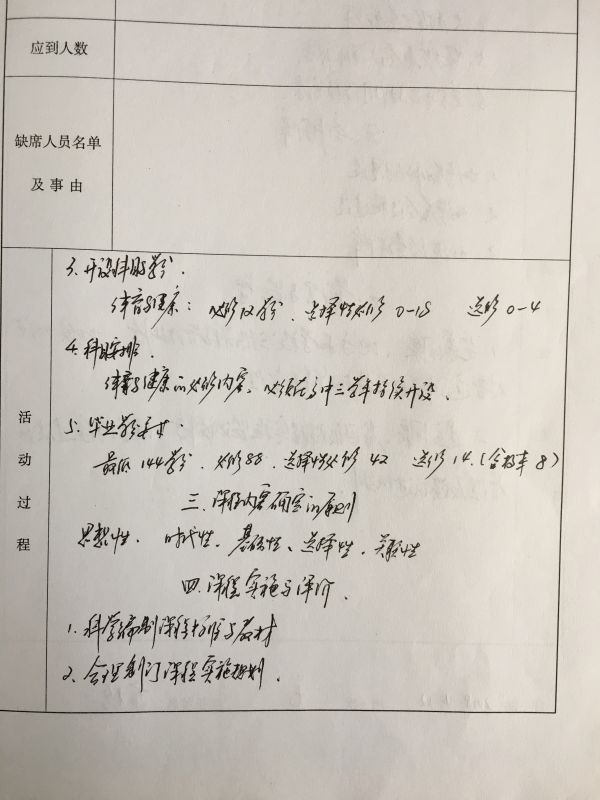 应到人数
缺席人员名单
及事由
活动过程
3.开设科目学分.
体育与健康: 必修12学分. 选择性必修 0-18 选修 0-4
4.科目安排.
体育与健康的必修内容,必须在高中三学年持续开设.
5.毕业学分要求:
最低144学分. 必修88. 选择性必修 42 选修 14.(含校本 8)
三.课程内容确定的原则
思想性. 时代性. 基础性、选择性. 关联性
四.课程实施与评价.
1.科学编制课程标准与教材
2.合理制订课程实施规划.